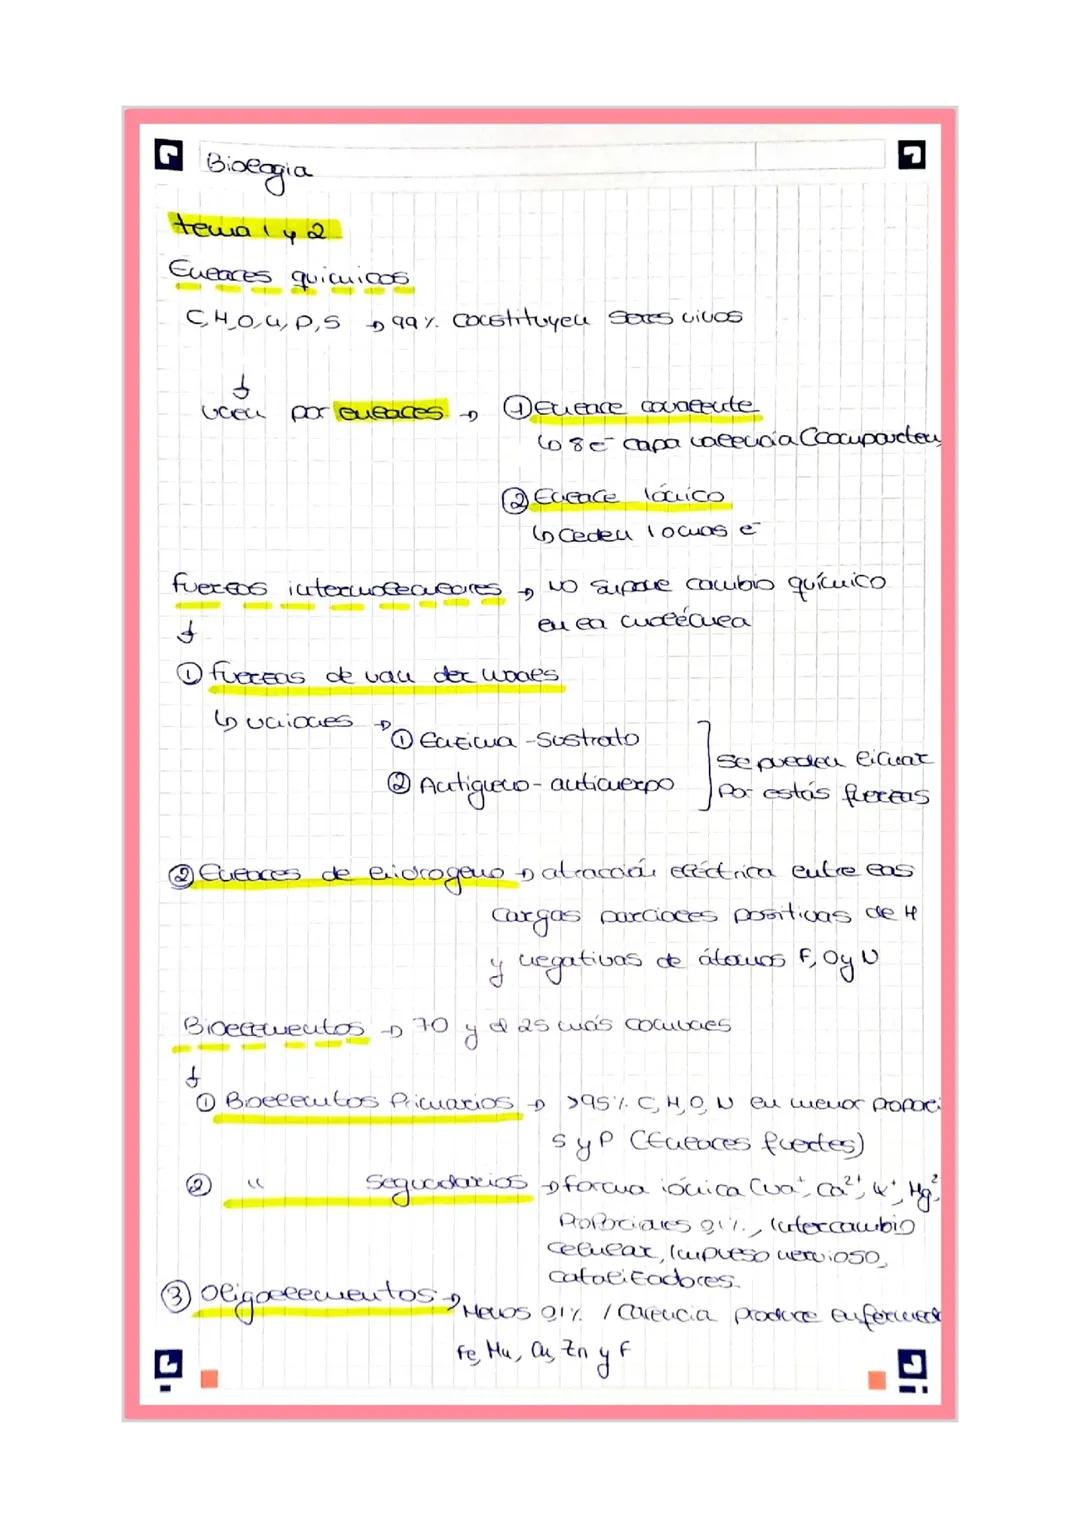 Biología
tema 1 y 2
Enlaces químicos
C,H,O,N,P,S → 99% constituyen seres vivos
↓
unen por enlaces → ① Enlace covalente
↳ 8e⁻ capa valencia (comparten
② Enlace iónico
↳ Ceden 1 o más e⁻
fuerzas intermoleculares → no supone cambio químico
↓ en la molécula
① fuerzas de van der waals
↳ uniones → ① Enzima - Sustrato
② Antígeno - anticuerpo
se pueden eliminar
por estás fuerzas
② Enlaces de hidrogeno → atracción eléctrica entre las
cargas parciales positivas de H
y negativas de átomos F, O y N
Bioelementos → 70 y 25 más comunes
↓
① Bioelementos Primarios → >95% C,H,O,N en menor proporci
S y P (Enlaces fuertes)
② " Segundarios → forma iónica (Na⁺, Ca²⁺, K⁺, Mg²
Proporciones 0,1%, Intercambio
celular, Impulso nervioso,
catalizadores.
③ Oligoelementos → Menos 0,1% / Carencia produce enfermed
Fe, Mn, Cu, Zn y F